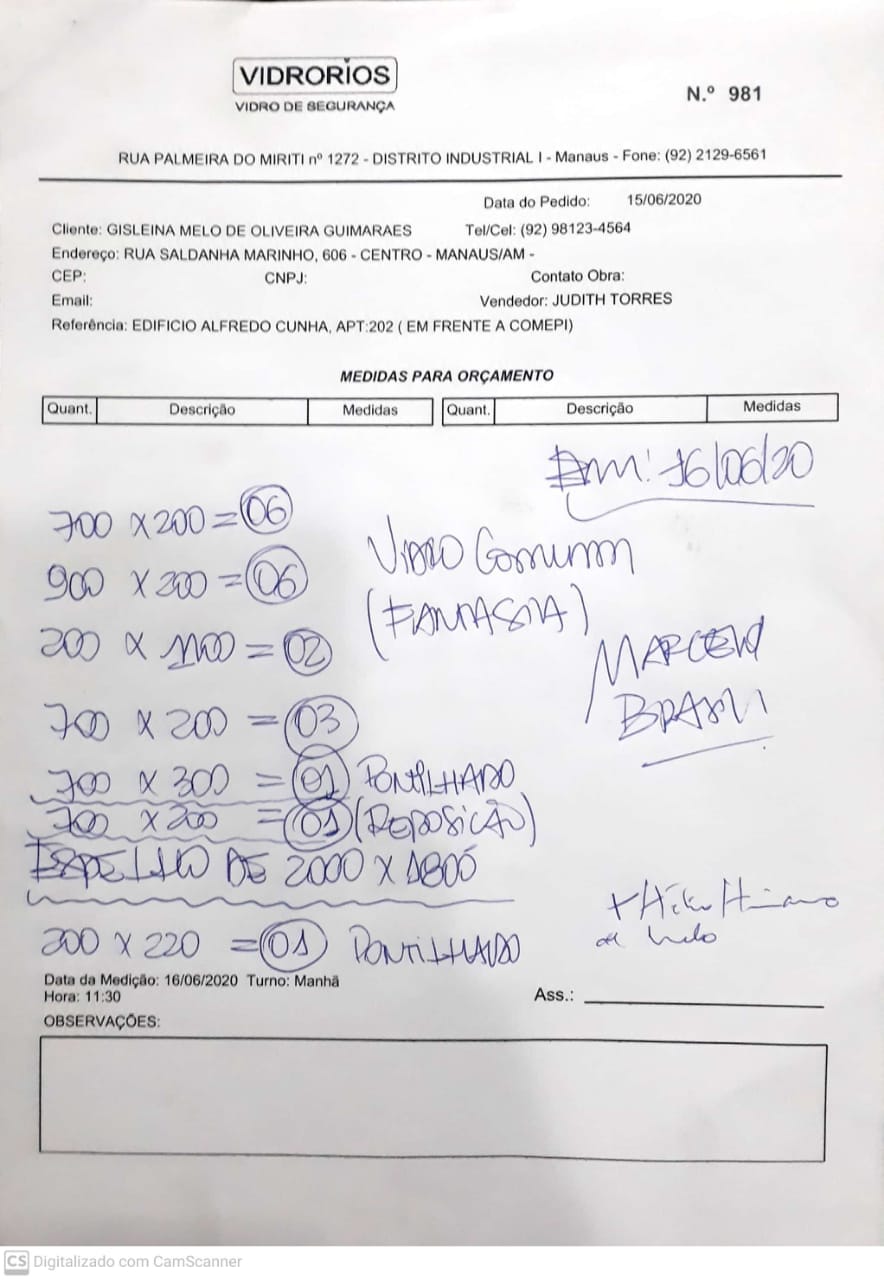 VIDRORIOS
VIDRO DE SEGURANÇA
N.º 981
RUA PALMEIRA DO MIRITI nº 1272 - DISTRITO INDUSTRIAL I - Manaus - Fone: (92) 2129-6561
Data do Pedido: 15/06/2020
Cliente: GISLEINA MELO DE OLIVEIRA GUIMARAES Tel/Cel: (92) 98123-4564
Endereço: RUA SALDANHA MARINHO, 606 - CENTRO - MANAUS/AM -
CEP: CNPJ: Contato Obra:
Email: Vendedor: JUDITH TORRES
Referência: EDIFICIO ALFREDO CUNHA, APT:202 ( EM FRENTE A COMEPI)
MEDIDAS PARA ORÇAMENTO
Quant. Descrição Medidas Quant. Descrição Medidas
Em: 16/06/20
700 X 200 = 06
900 X 200 = 06
VIDRO Comum
(FANTASIA)
200 X 1100 = 02
MARCEW
BRASIL
700 X 200 = 03
700 X 300 = 01 PONTILHADO
700 X 200 = 01 (REPOSIÇÃO)
ESPELHO DE 2000 X 1800
200 X 220 = 01 PONTILHADO
Data da Medição: 16/06/2020 Turno: Manhã
Hora: 11:30
Ass.:
OBSERVAÇÕES:
CS Digitalizado com CamScanner